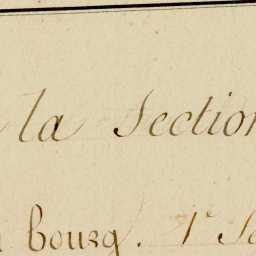 la Section
bourg. 1e